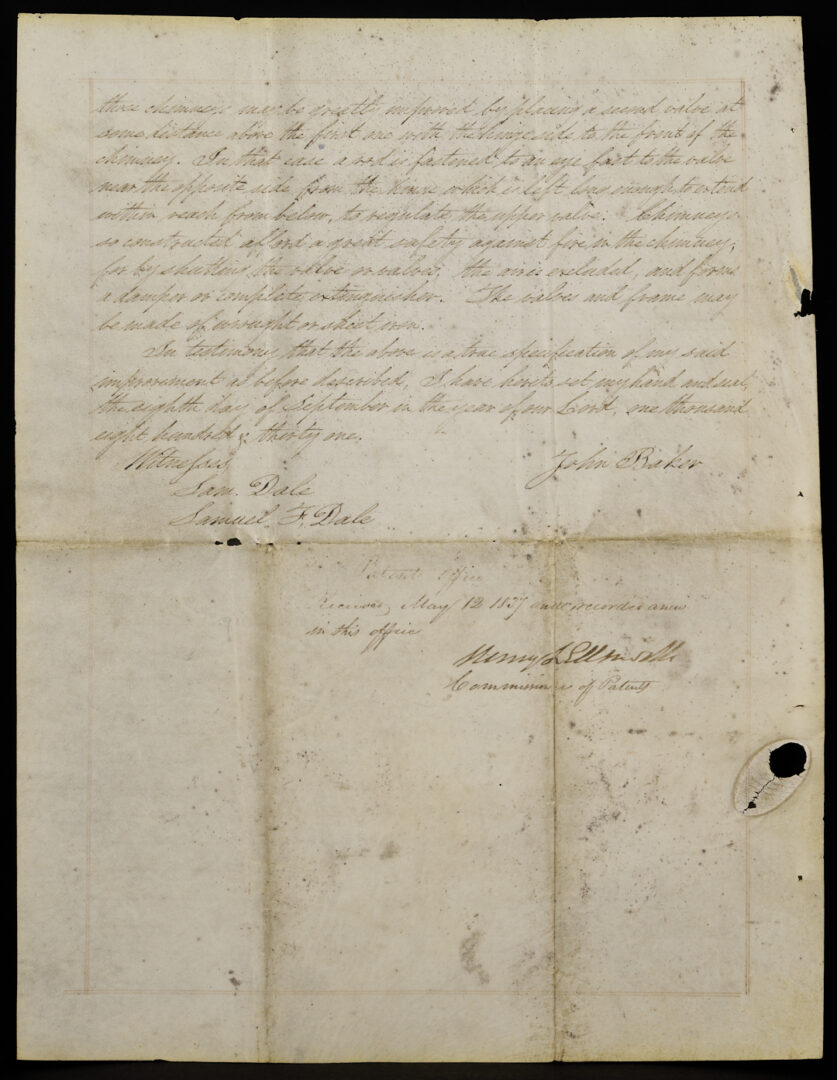 those chimneys may be greatly improved by placing a second valve at
some distance above the first one with the hinge side to the front of the
chimney. In that case a rod is fastened to an eye fast to the valve
near the opposite side from the hinge which is left long enough to extend
within reach from below, to regulate the upper valve. Chimneys
so constructed afford a great safety against fire in the chimney,
for by shutting the valve or valves, the air is excluded, and forms
a damper or complete extinguisher. The valves and frame may
be made of wrought or sheet iron.
In testimony that the above is a true specification of my said
improvement as before described, I have hereto set my hand and seal,
the eighth day of September in the year of our Lord, one thousand
eight hundred & thirty one.
Witnesses
John Baker
Sam. Dale
Samuel F. Dale
Patent Office
Received May 12 1837 and recorded anew
in this office
Henry L Ellsworth
Commissioner of Patents